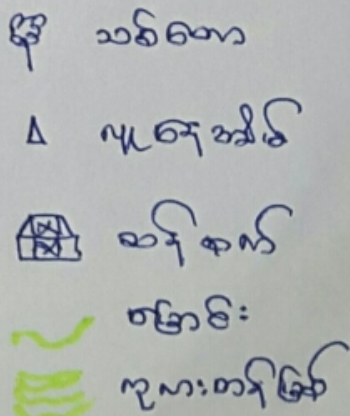 သစ်တော
လူနေအိမ်
ဆန်စက်
ချောင်း
ကုလားတန်မြစ်